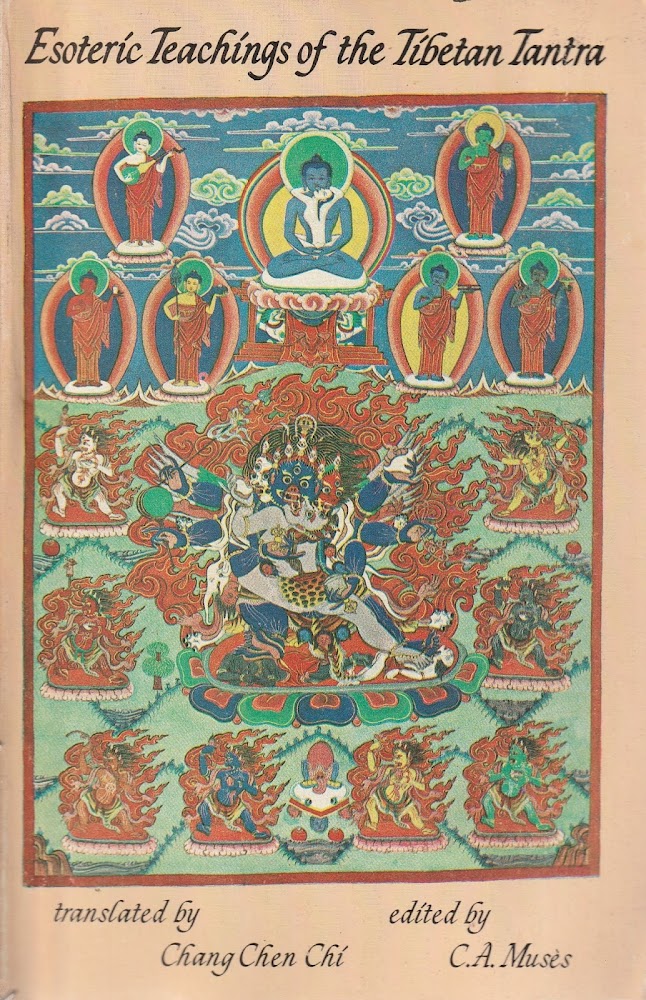 Esoteric Teachings of the Tibetan Tantra
translated by
Chang Chen Chi
edited by
C.A. Musès